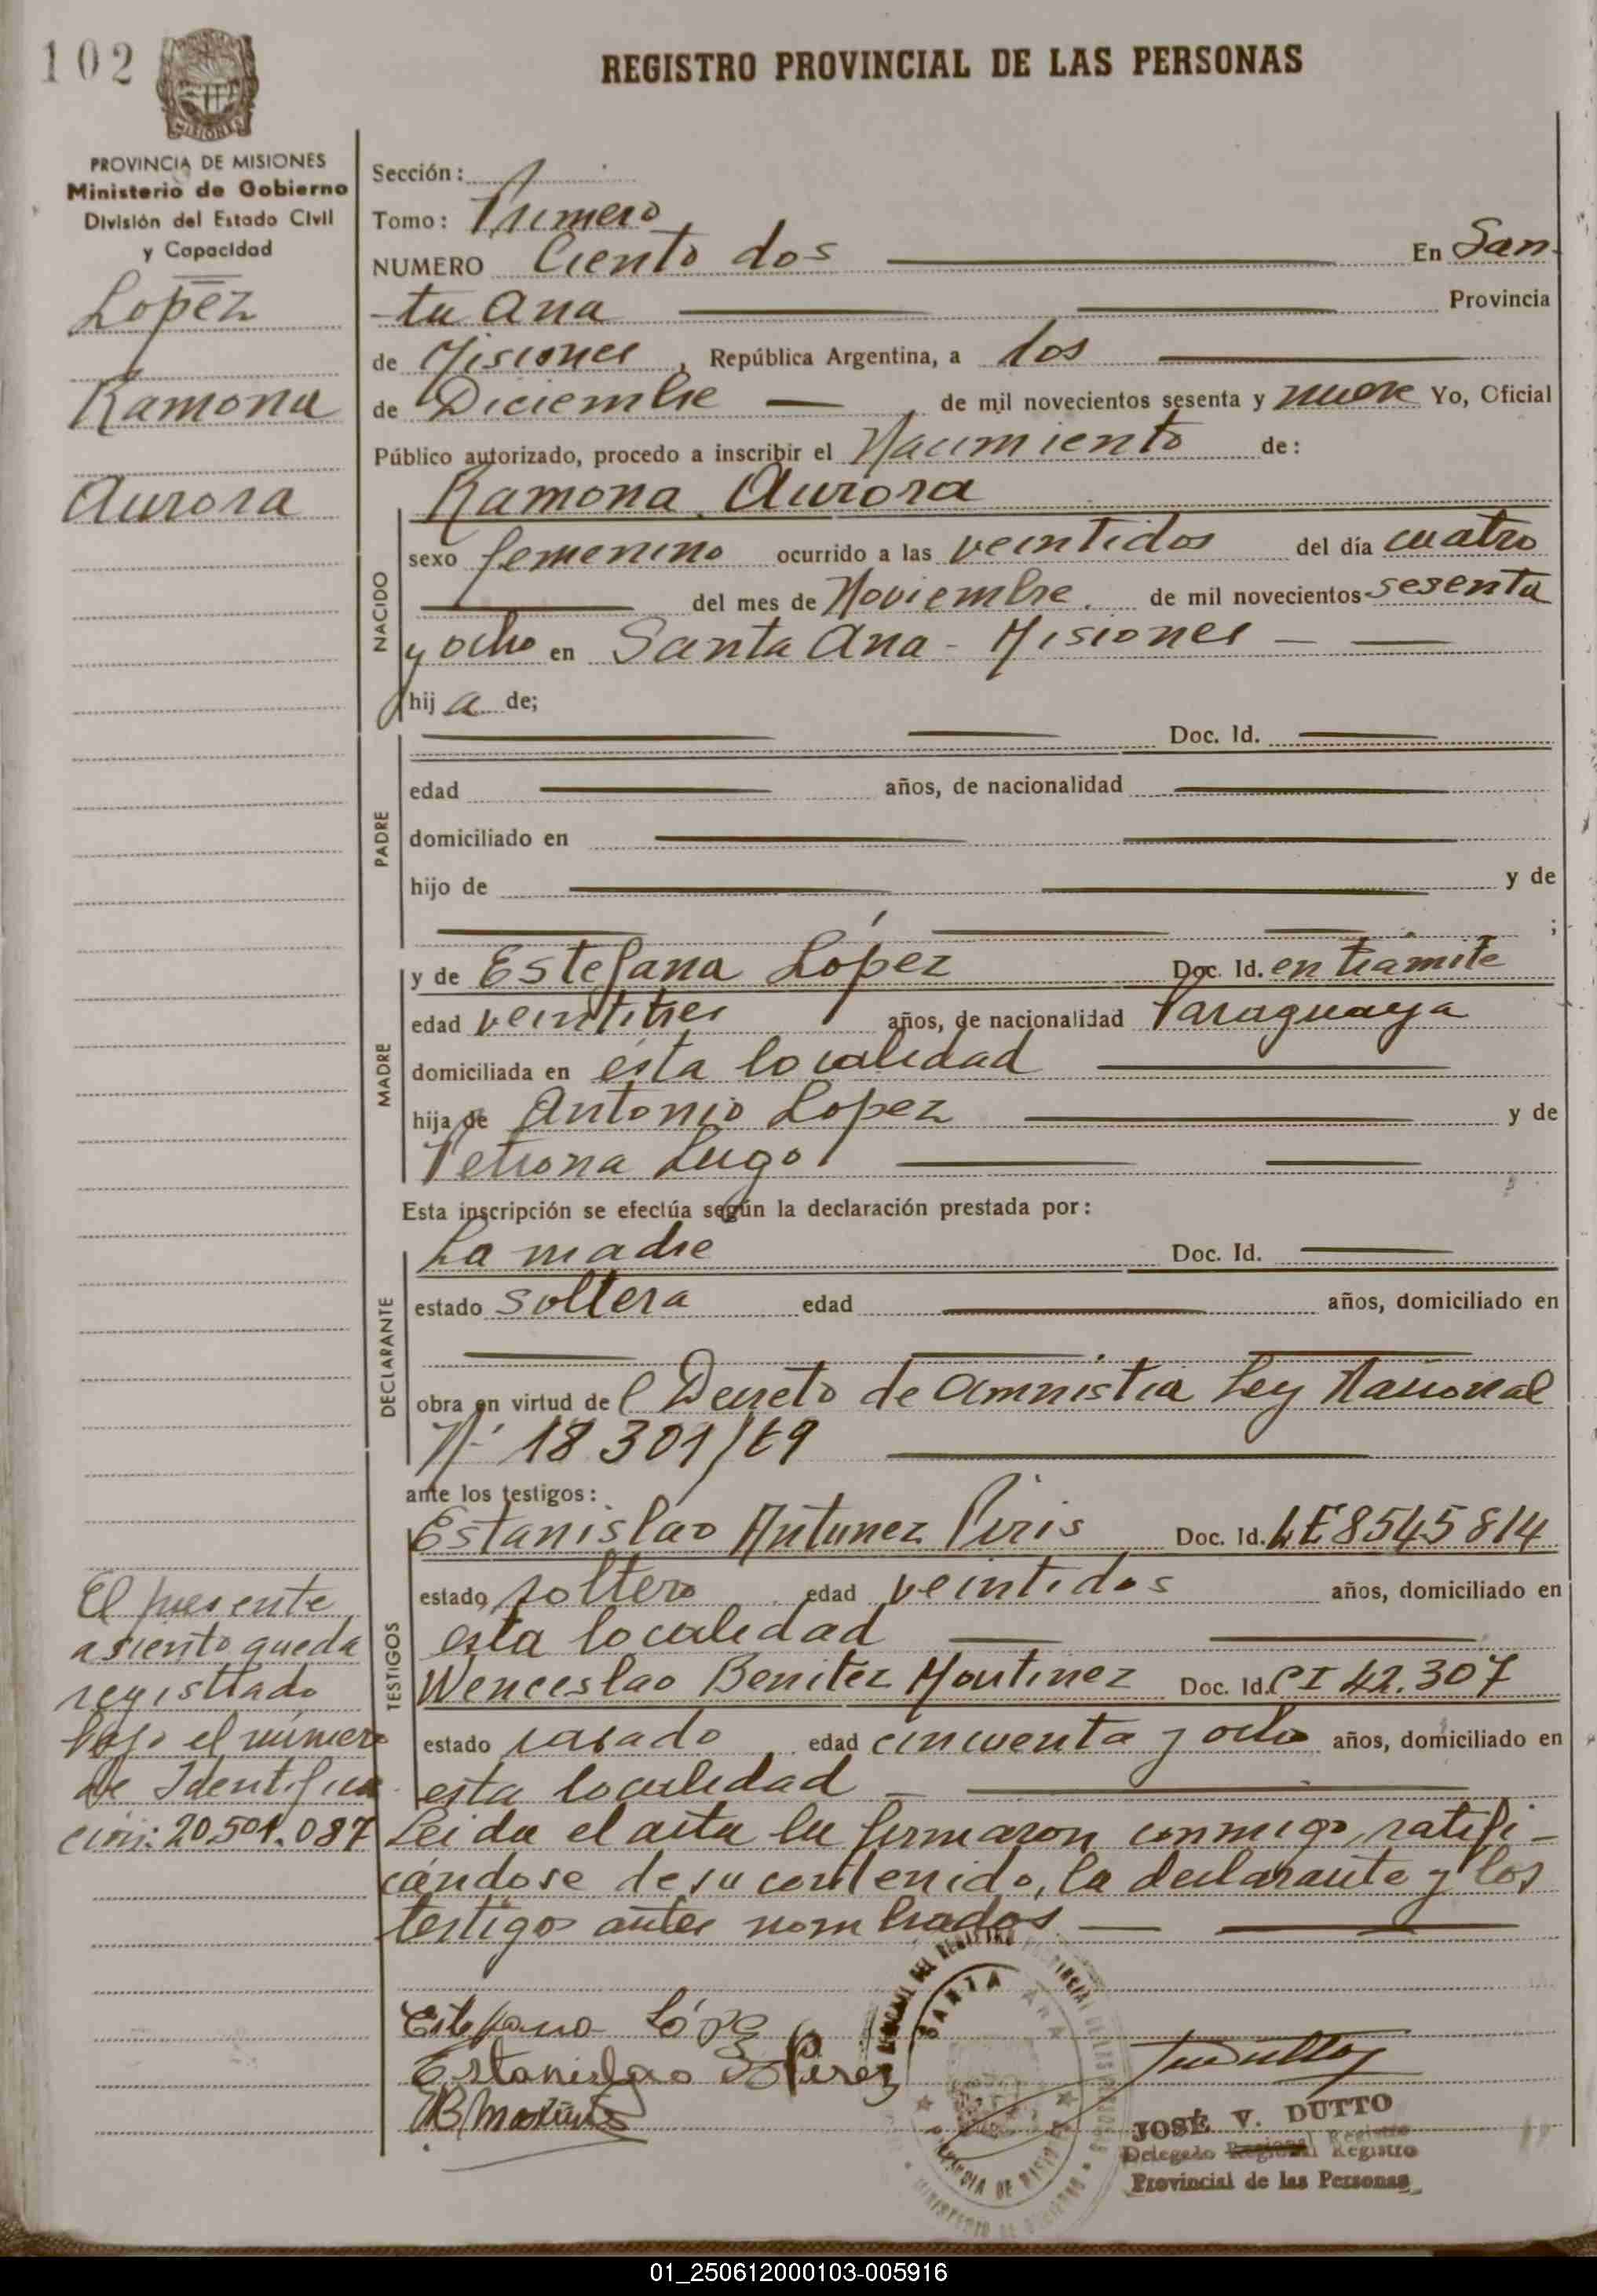 102
MISIONES
REGISTRO PROVINCIAL DE LAS PERSONAS
PROVINCIA DE MISIONES
Ministerio de Gobierno
División del Estado Civil
y Capacidad
Lopez
Ramona
Aurora
Sección:
Tomo: Primero
NUMERO Ciento dos En San-
ta Ana Provincia
de Misiones, República Argentina, a dos
de Diciembre de mil novecientos sesenta y nueve Yo, Oficial
Público autorizado, procedo a inscribir el Nacimiento de:
NACIDO
Ramona Aurora
sexo femenino ocurrido a las veintidos del día cuatro
del mes de Noviembre de mil novecientos sesenta
y ocho en Santa Ana - Misiones
hij a de;
PADRE
Doc. Id.
edad años, de nacionalidad
domiciliado en
hijo de y de
;
MADRE
y de Estefana López Doc. Id. en trámite
edad veintitres años, de nacionalidad Paraguaya
domiciliada en ésta localidad
hija de Antonio Lopez y de
Petrona Lugo
Esta inscripción se efectúa según la declaración prestada por:
DECLARANTE
La madre Doc. Id.
estado soltera edad años, domiciliado en
obra en virtud de l Decreto de amnistia Ley Nacional
N° 18 301/69
ante los testigos:
TESTIGOS
Estanislao Antunez Piris Doc. Id. LE 8545814
estado soltero edad veintidos años, domiciliado en
esta localidad
Wenceslao Benitez Martinez Doc. Id. CI 42.307
estado casado edad cincuenta y ocho años, domiciliado en
esta localidad
Leida el acta la firmaron conmigo, ratifi-
cándose de su contenido, la declarante y los
testigos antes nombrados
El presente
asiento queda
registrado
bajo el número
de Identifica
ción: 20.501.087
Estefana López
Estanislao
SANTA ANA
JOSÉ V. DUTTO
Delegado Regional Registro
Provincial de las Personas
01_250612000103-005916